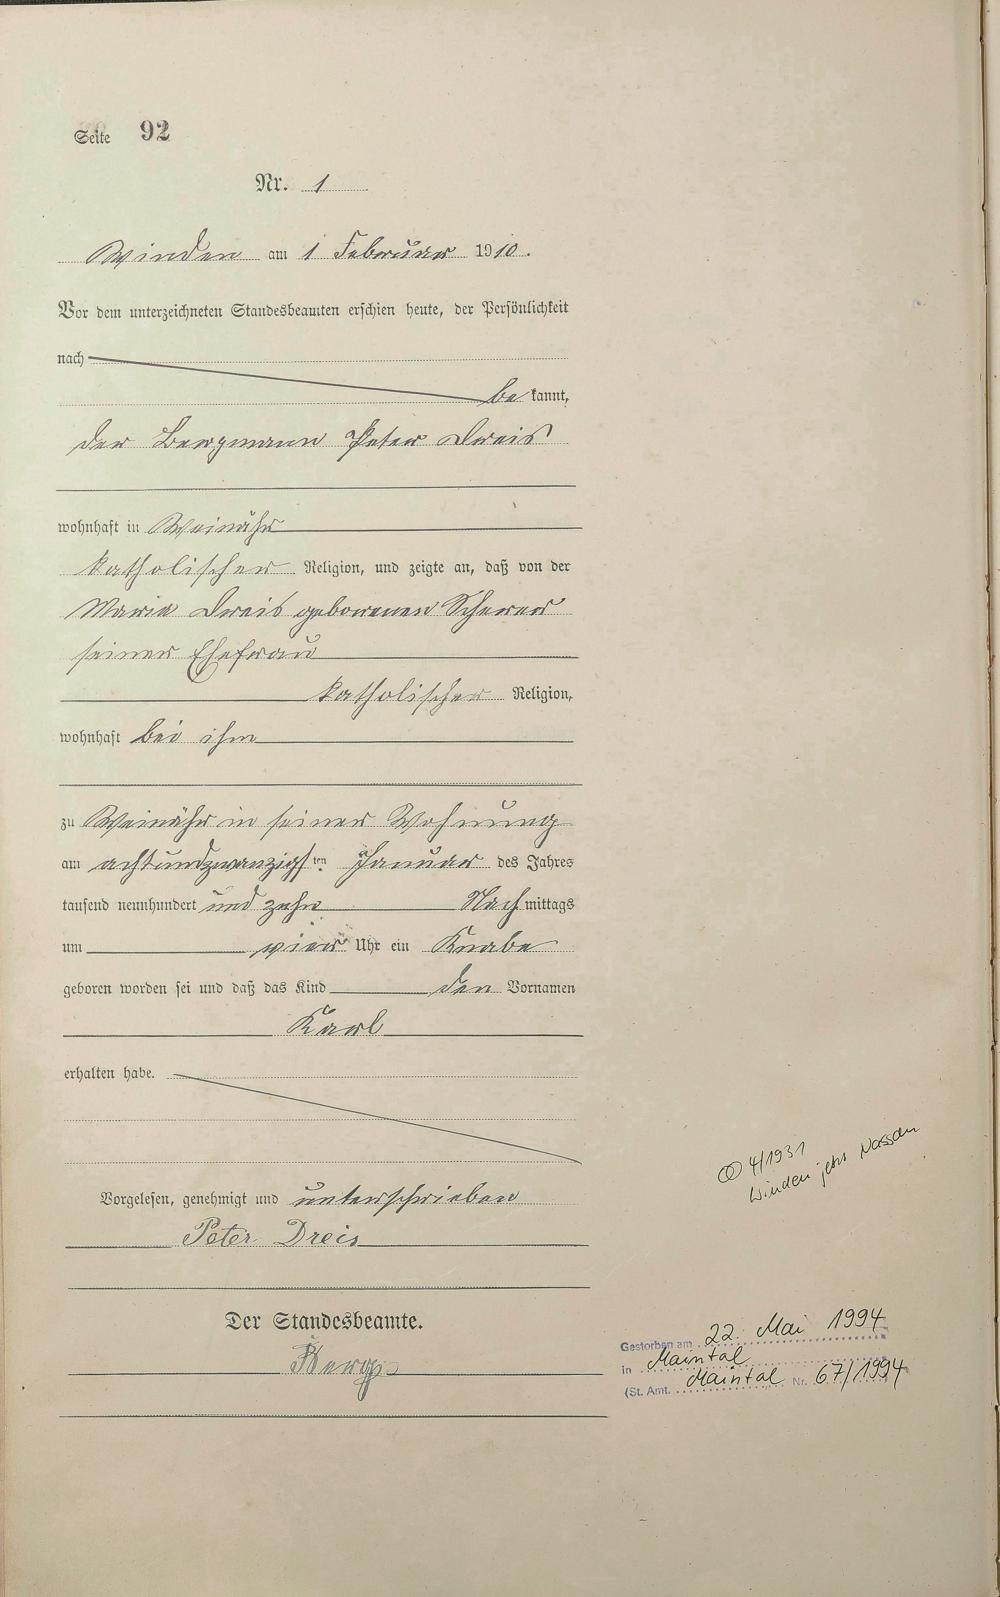 Seite 92
Nr. 1
Winden am 1 Februar 1910.
Vor dem unterzeichneten Standesbeamten erschien heute, der Persönlichkeit
nach
be kannt,
der Bergmann Peter Dreis
wohnhaft in Weinähr
katholischer Religion, und zeigte an, daß von der
Maria Dreis geborenen Scherer
seiner Ehefrau
katholischer Religion,
wohnhaft bei ihm
zu Weinähr in seiner Wohnung
am achtundzwanzigsten Januar des Jahres
tausend neunhundert und zehn Nach mittags
um vier Uhr ein Knabe
geboren worden sei und daß das Kind den Vornamen
Karl
erhalten habe.
Vorgelesen, genehmigt und unterschrieben
Peter Dreis
Der Standesbeamte.
∞ 4/1931
Winden jetzt Nassau
Gestorben am 22. Mai 1994
in Maintal
(St. Amt. Maintal Nr. 67/1994